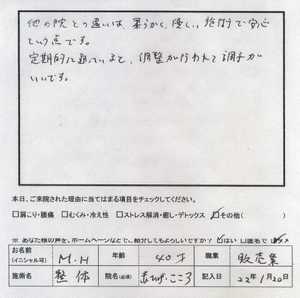 他の院との違いは、柔らかく、優しい、施術で安心
という点です。
定期的に通っていると、調整が行われて調子が
いいです。
本日、ご来院された理由に当てはまる項目をチェックしてください。
□肩こり・腰痛 □むくみ・冷え性 □ストレス解消・癒し・デトックス ☑その他( )
※ あなた様の声を、ホームページなどで、紹介してもよろしいですか? ☑はい □匿名で
お名前(イニシャル可) M.H 年齢 40才 職業 販売業
施術名 整体 院名(必須) こころ 記入日 22年1月20日